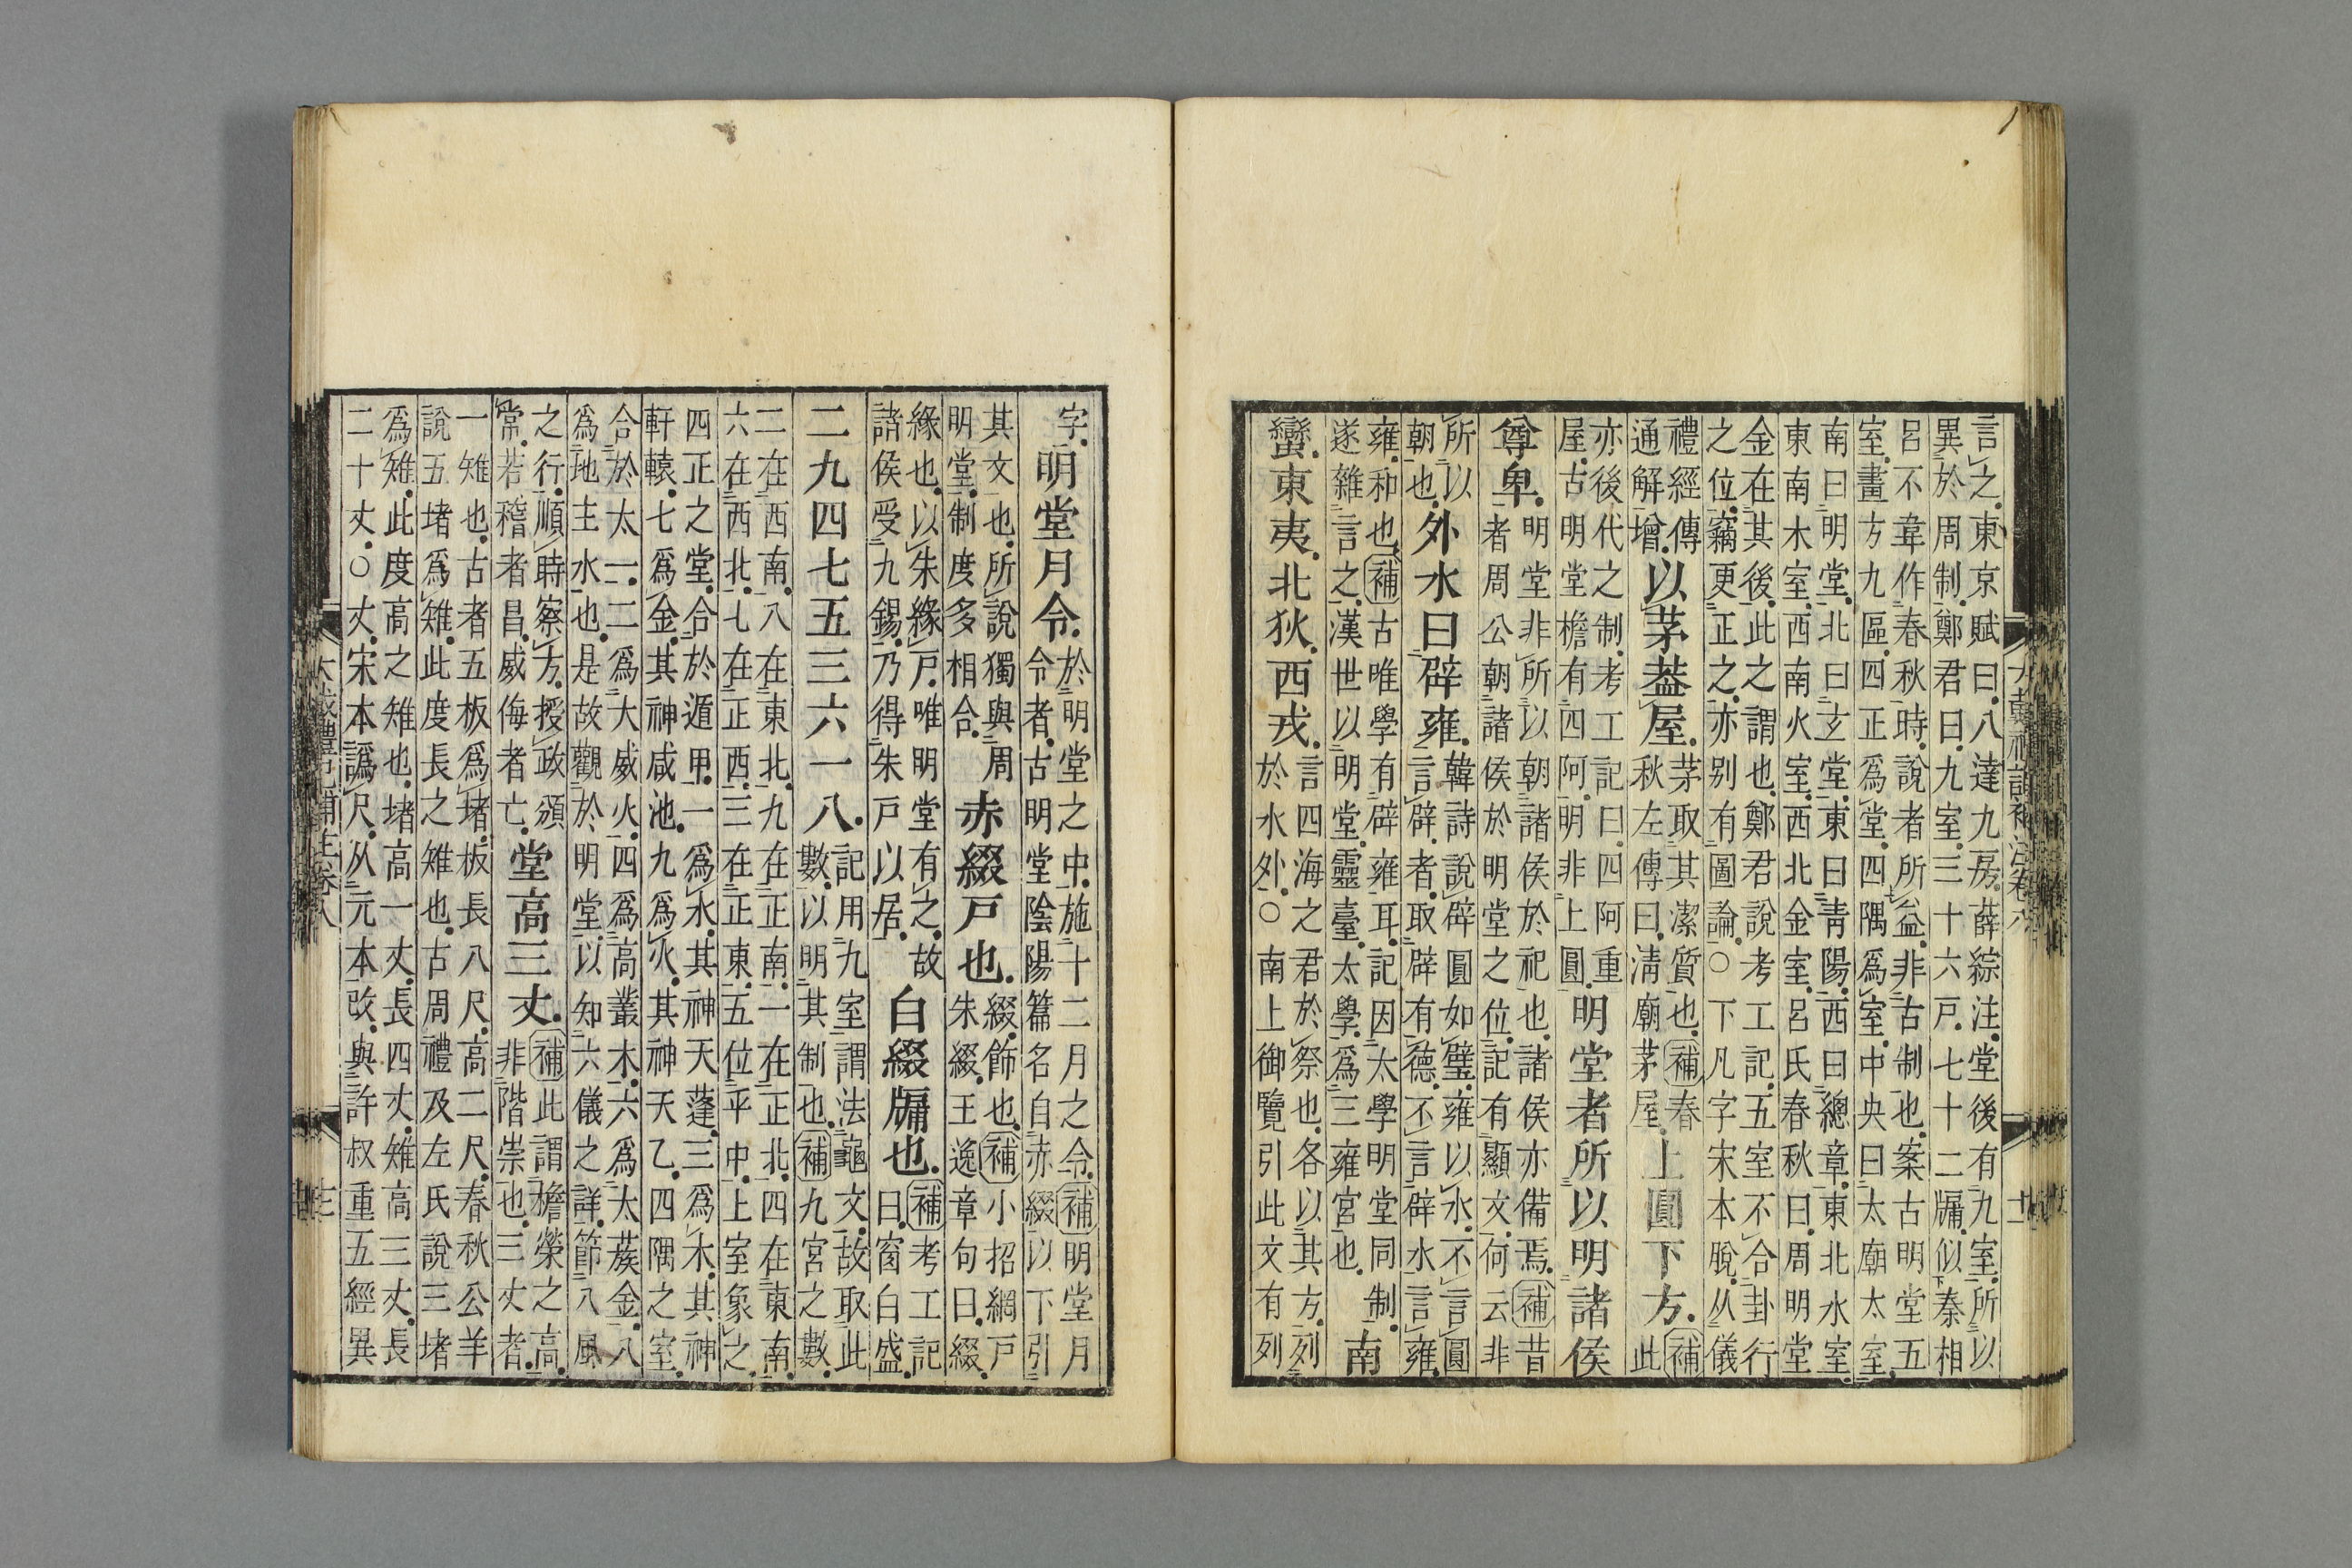 言之東京賦曰八達九房薛綜注堂後有九室所以
異於周制鄭君曰九室三十六戶七十二牖似秦相
呂不韋作春秋時說者所益非古制也案古明堂五
室畫方九區四正爲堂四隅爲室中央曰太廟太室
南曰明堂北曰玄堂東曰靑陽西曰總章東北水室
東南木室西南火室西北金室呂氏春秋曰周明堂
金在其後此之謂也鄭君說考工記五室不合卦行
之位竊更正之亦别有圖論○下凡字宋本脫从儀
禮經傳
通解增
以茅葢屋
茅取其潔質也補春
秋左傳曰淸廟茅屋
上圓下方
補
此
亦後代之制考工記曰四阿重
屋古明堂檐有四阿明非上圓
明堂者所以明諸侯
尊卑
明堂非所以朝諸侯於祀也諸侯亦備焉補昔
者周公朝諸侯於明堂之位記有顯文何云非
所以
朝也
外水曰辟雍
韓詩說辟圓如璧雍以水不言圓
言辟者取辟有德不言辟水言雍
雍和也補古唯學有辟雍耳記因太學明堂同制
遂雜言之漢世以明堂靈臺太學爲三雍宮也
南
蠻東夷北狄西戎
言四海之君於祭也各以其方列
於水外○南上御覽引此文有列
字
明堂月令
於明堂之中施十二月之令補明堂月
令者古明堂陰陽篇名自赤綴以下引
其文也所說獨與周
明堂制度多相合
赤綴戶也
綴飾也補小招網戶
朱綴王逸章句曰綴
緣也以朱緣戶唯明堂有之故
諸侯受九錫乃得朱戶以居
白綴牖也
補考工記
曰窗白盛
二九四七五三六一八
記用九室謂法龜文故取此
數以明其制也補九宮之數
二在西南八在東北九在正南一在正北四在東南
六在西北七在正西三在正東五位平中上室象之
四正之堂合於遁甲一爲水其神天蓬三爲木其神
軒轅七爲金其神咸池九爲火其神天乙四隅之室
合於太一二爲大威火四爲高叢木六爲太蔟金八
爲地主水也是故觀於明堂以知六儀之詳節八風
之行順時察方授政頒
常若稽者昌威侮者亡
堂高三丈
補此謂檐榮之高
非階崇也三丈者
一雉也古者五板爲堵板長八尺高二尺春秋公羊
說五堵爲雉此度長之雉也古周禮及左氏說三堵
爲雉此度高之雉也堵高一丈長四丈雉高三丈長
二十丈○丈宋本譌尺从元本改與許叔重五經異